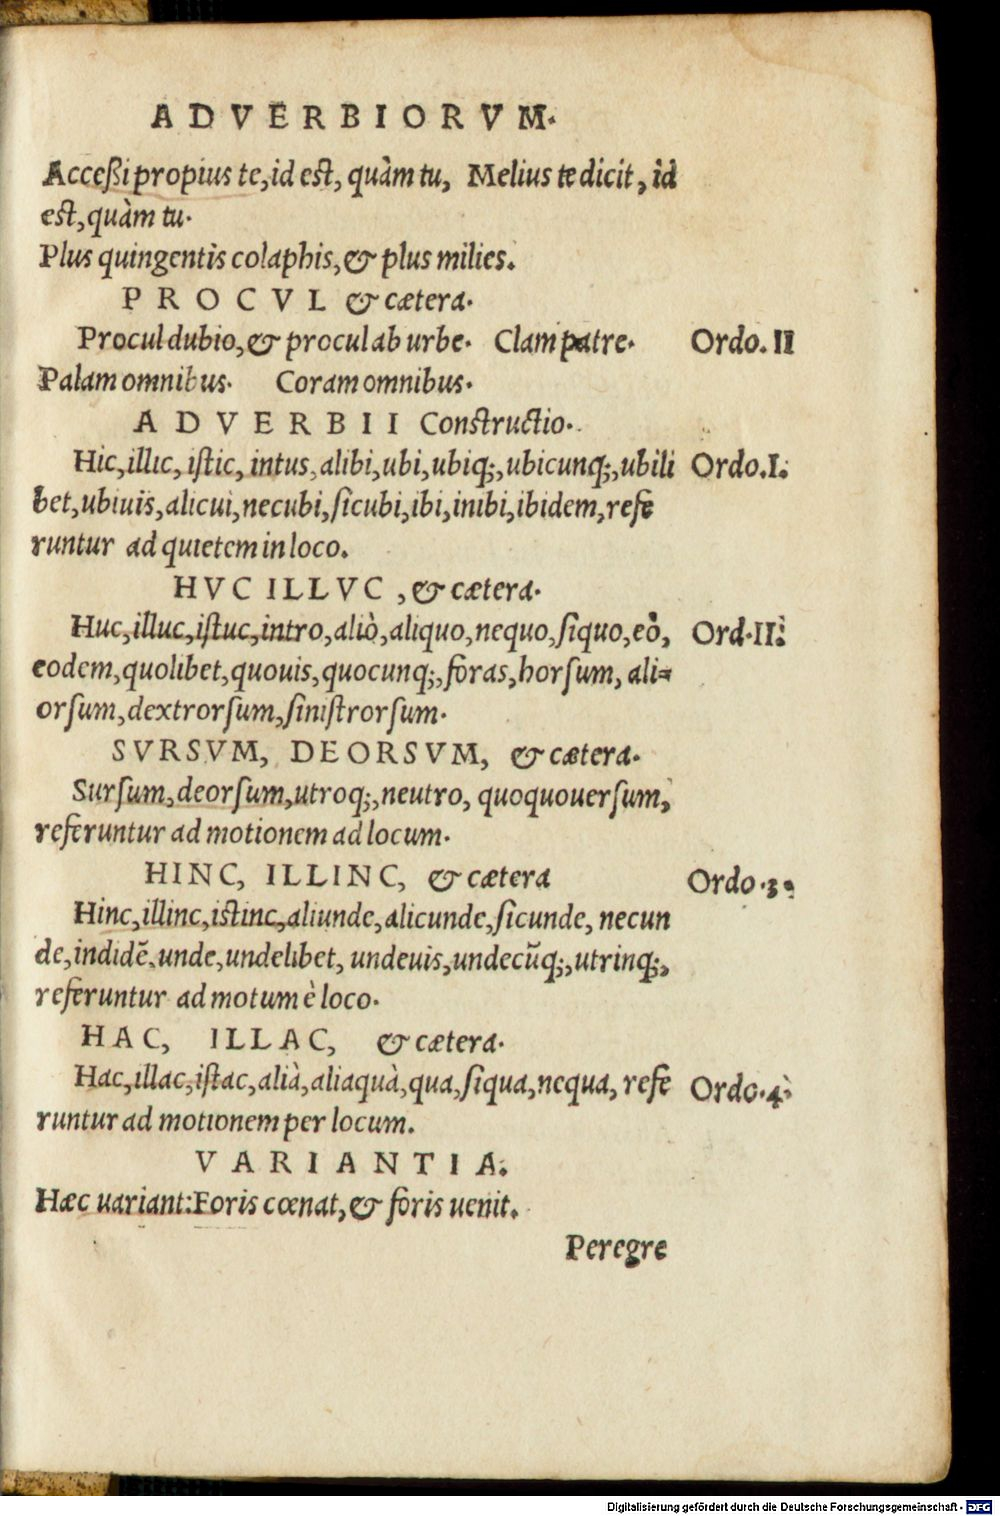 ADVERBIORVM.
Acceßi propius te, id est, quàm tu, Melius te dicit, id
est, quàm tu.
Plus quingentis colaphis, & plus milies.
PROCVL & cætera.
Procul dubio, & procul ab urbe. Clam patre. Ordo. II
Palam omnibus. Coram omnibus.
ADVERBII Constructio.
Hic, illic, istic, intus, alibi, ubi, ubiq;, ubicunq;, ubili Ordo. I.
bet, ubiuis, alicui, necubi, sicubi, ibi, inibi, ibidem, refe
runtur ad quietem in loco.
HVC ILLVC, & cætera.
Huc, illuc, istuc, intro, aliò, aliquo, nequo, siquo, eò, Ord. II.
eodem, quolibet, quouis, quocunq;, foras, horsum, ali=
orsum, dextrorsum, sinistrorsum.
SVRSVM, DEORSVM, & cætera.
Sursum, deorsum, utroq;, neutro, quoquouersum,
referuntur ad motionem ad locum.
HINC, ILLINC, & cætera Ordo. 3.
Hinc, illinc, istinc, aliunde, alicunde, sicunde, necun
de, indidē, unde, undelibet, undeuis, undecūq;, utrinq;,
referuntur ad motum è loco.
HAC, ILLAC, & cætera.
Hac, illac, istac, alià, aliaquà, qua, siqua, nequa, refe Ordo. 4.
runtur ad motionem per locum.
VARIANTIA.
Hæc uariant: Foris cœnat, & foris uenit.
Peregre
Digitalisierung gefördert durch die Deutsche Forschungsgemeinschaft - DFG